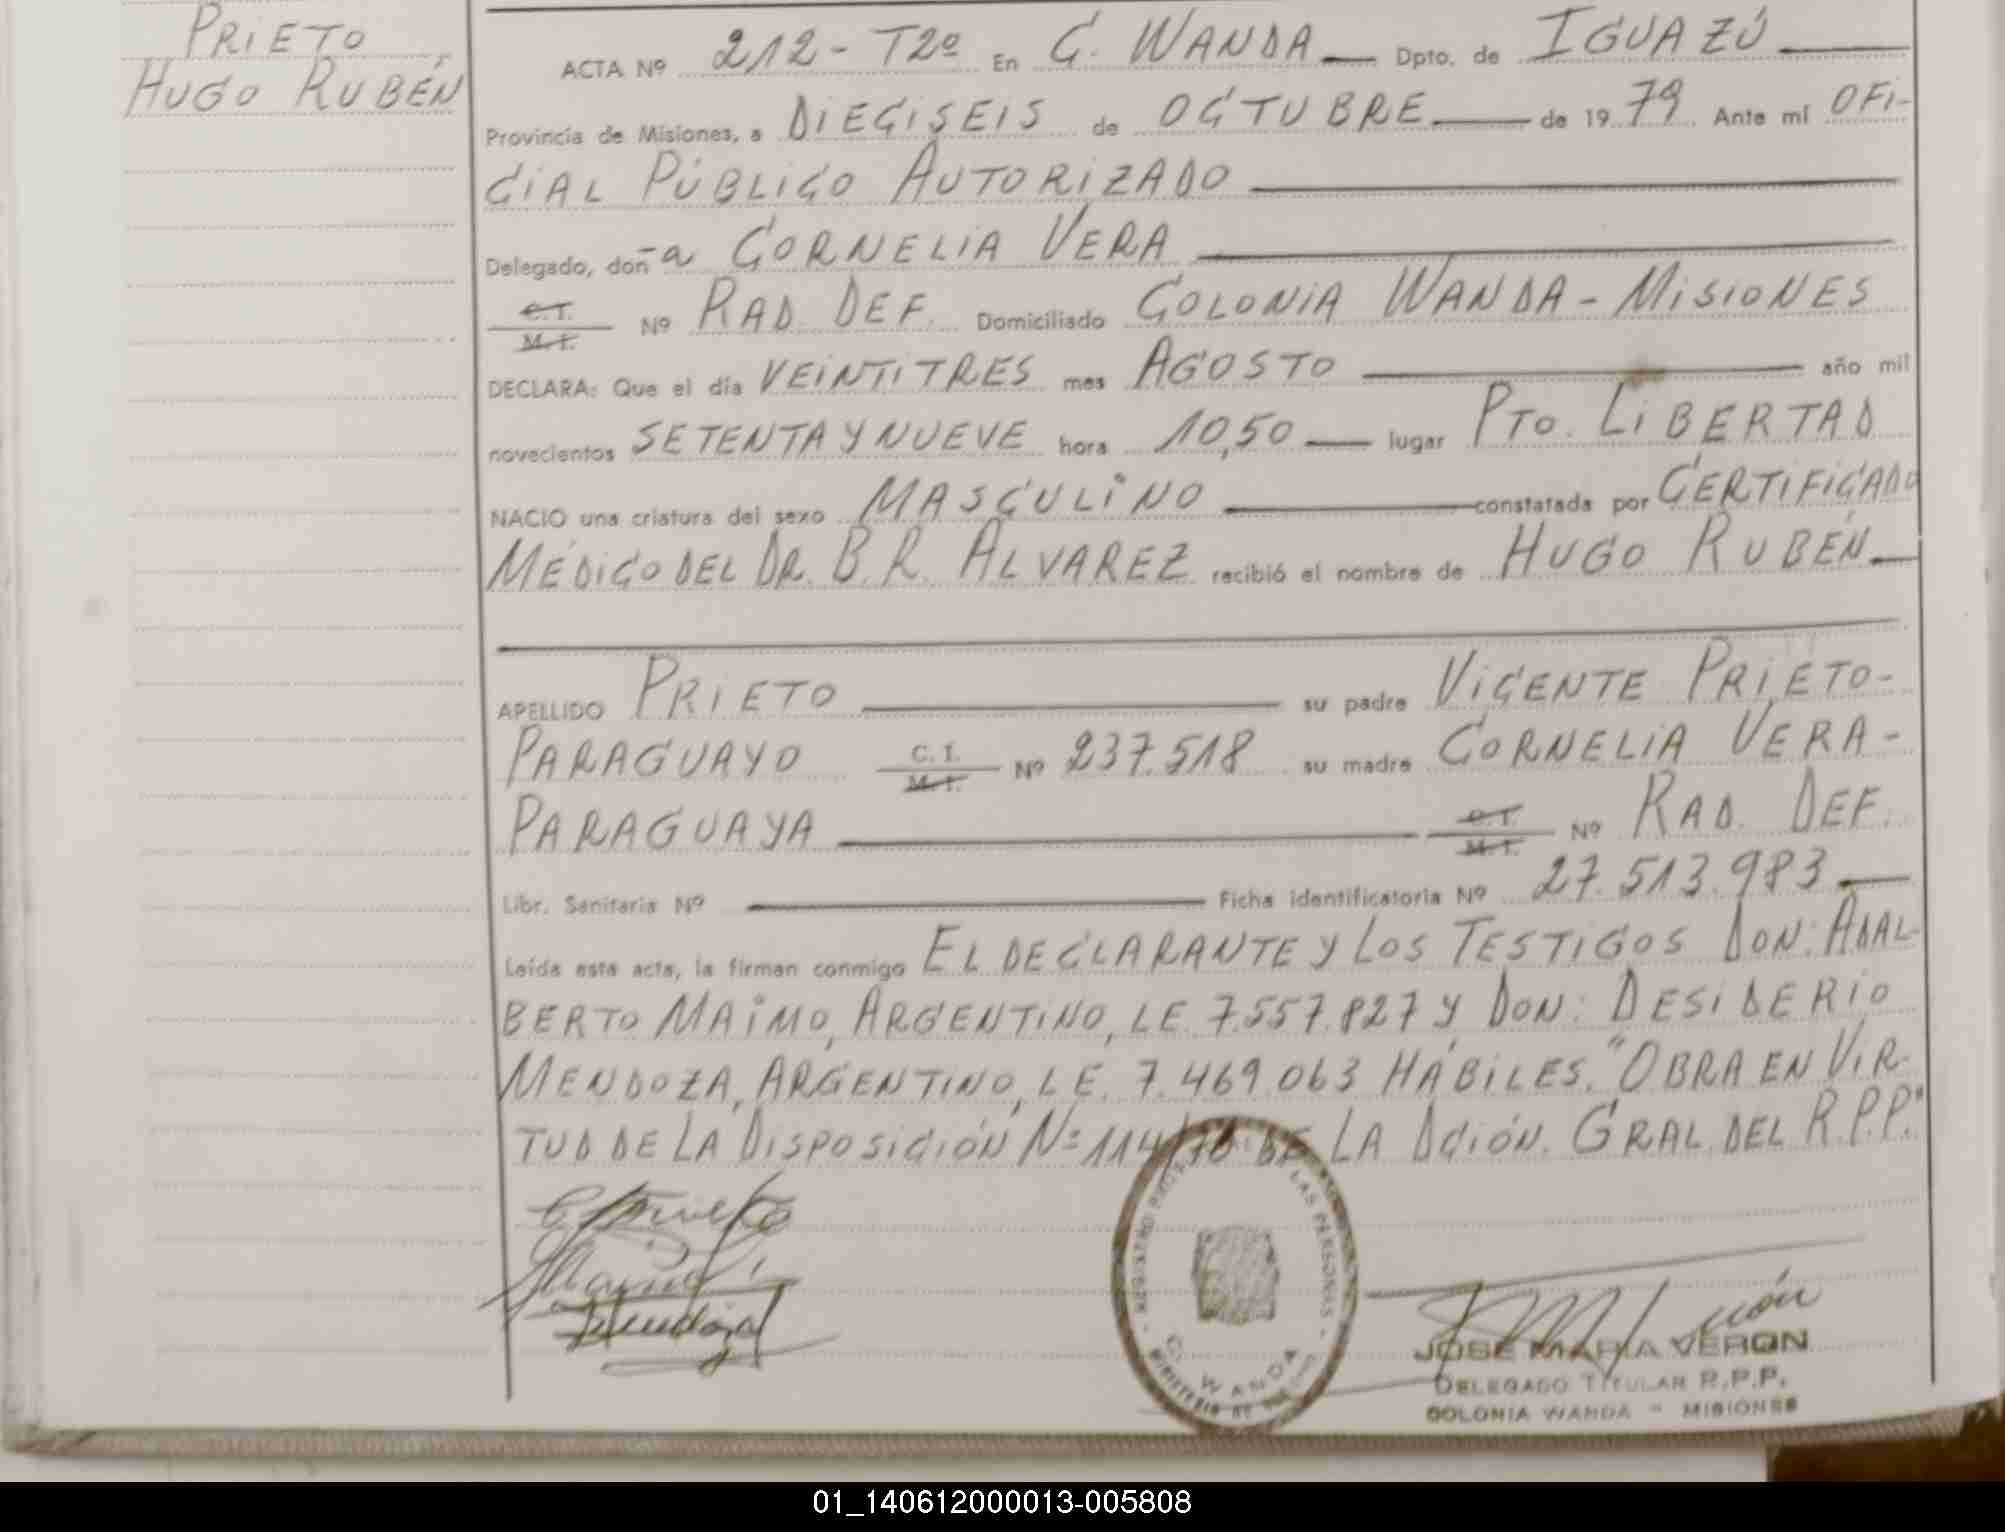 PRIETO
HUGO RUBÉN
ACTA Nº 212 - T2º En C. WANDA Dpto. de IGUAZÚ
Provincia de Misiones, a DIECISEIS de OCTUBRE de 1979 Ante mí OFI-
CIAL PÚBLICO AUTORIZADO
Delegado, doñ-a CORNELIA VERA
C.I.
M.I. Nº RAD. DEF. Domiciliado COLONIA WANDA - MISIONES
DECLARA: Que el día VEINTITRES mes AGOSTO año mil
novecientos SETENTA Y NUEVE hora 10,50 lugar PTO. LIBERTAD
NACIO una criatura del sexo MASCULINO constatada por CERTIFICADO
MÉDICO DEL DR. B.R. ALVAREZ recibió el nombre de HUGO RUBÉN
APELLIDO PRIETO su padre VICENTE PRIETO-
PARAGUAYO C.I. M.I. Nº 237.518 su madre CORNELIA VERA-
PARAGUAYA C.I. M.I. Nº RAD. DEF.
Libr. Sanitaria Nº Ficha identificatoria Nº 27.513.983
Leída esta acta, la firman conmigo EL DECLARANTE Y LOS TESTIGOS DON: ADAL-
BERTO MAIMO, ARGENTINO, LE. 7.557.827 Y DON: DESIDERIO
MENDOZA, ARGENTINO, LE. 7.469.063 HÁBILES. "OBRA EN VIR-
TUD DE LA DISPOSICIÓN Nº 114/78 DE LA DCIÓN. GRAL. DEL R.P.P."
REGISTRO DE LAS PERSONAS
C. WANDA
MINISTERIO DE
JOSE MARIA VERON
DELEGADO TITULAR R.P.P.
COLONIA WANDA - MISIONES
01_140612000013-005808